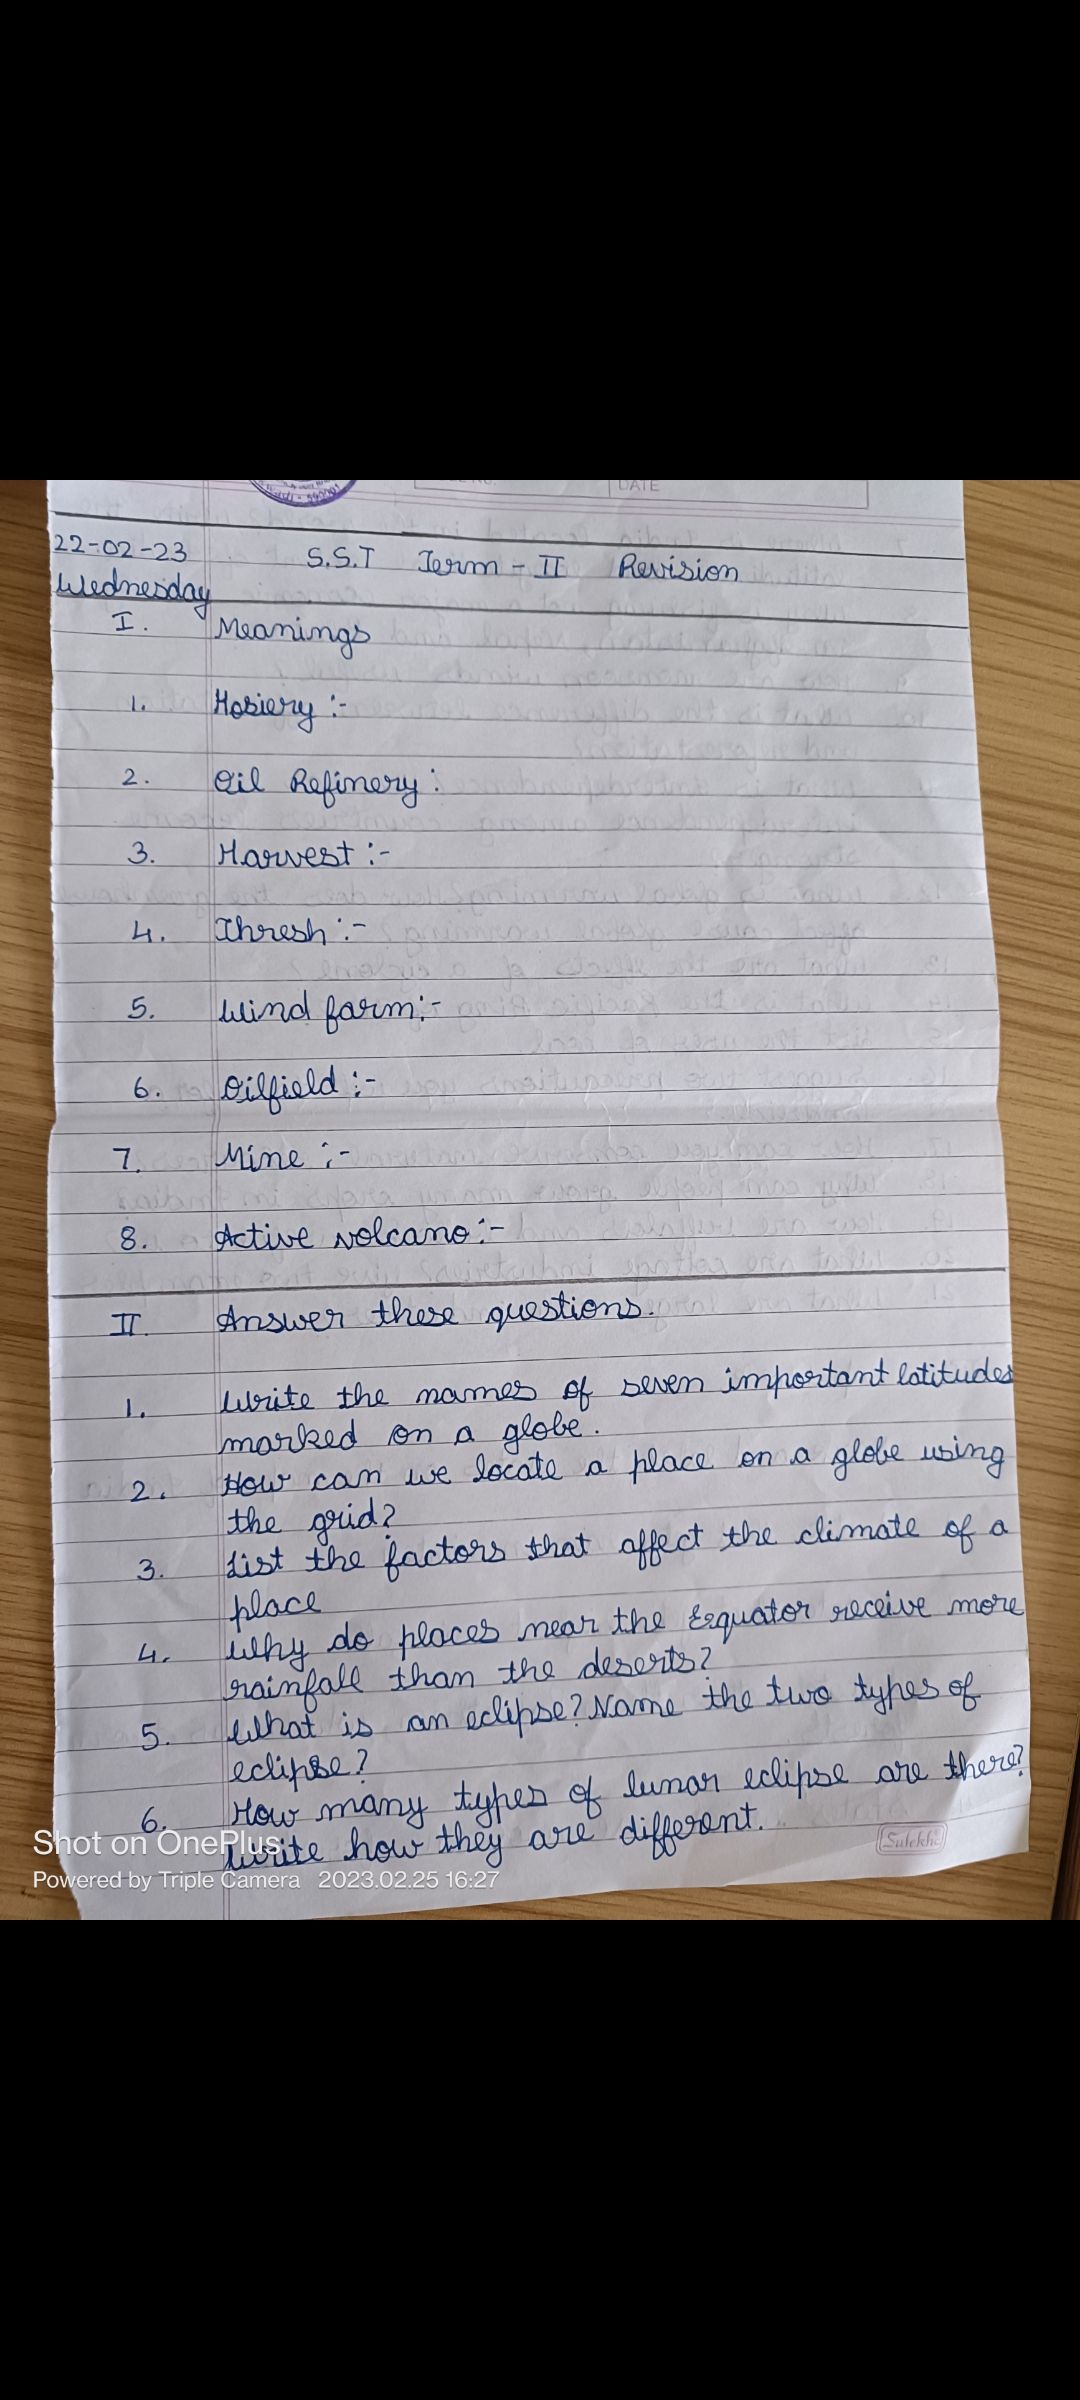 DATE
22-02-23 S.S.T Term - II Revision
Wednesday
I. Meanings
1. Hosiery :-
2. Oil Refinery :
3. Harvest :-
4. Thresh :-
5. Wind farm :-
6. Oilfield :-
7. Mine :-
8. Active volcano :-
II. Answer these questions.
1. Write the names of seven important latitudes
marked on a globe.
2. How can we locate a place on a globe using
the grid?
3. List the factors that affect the climate of a
place
4. Why do places near the Equator receive more
rainfall than the deserts?
5. What is an eclipse? Name the two types of
eclipse?
6. How many types of lunar eclipse are there?
Write how they are different.
Sulekh
Shot on OnePlus
Powered by Triple Camera 2023.02.25 16:27